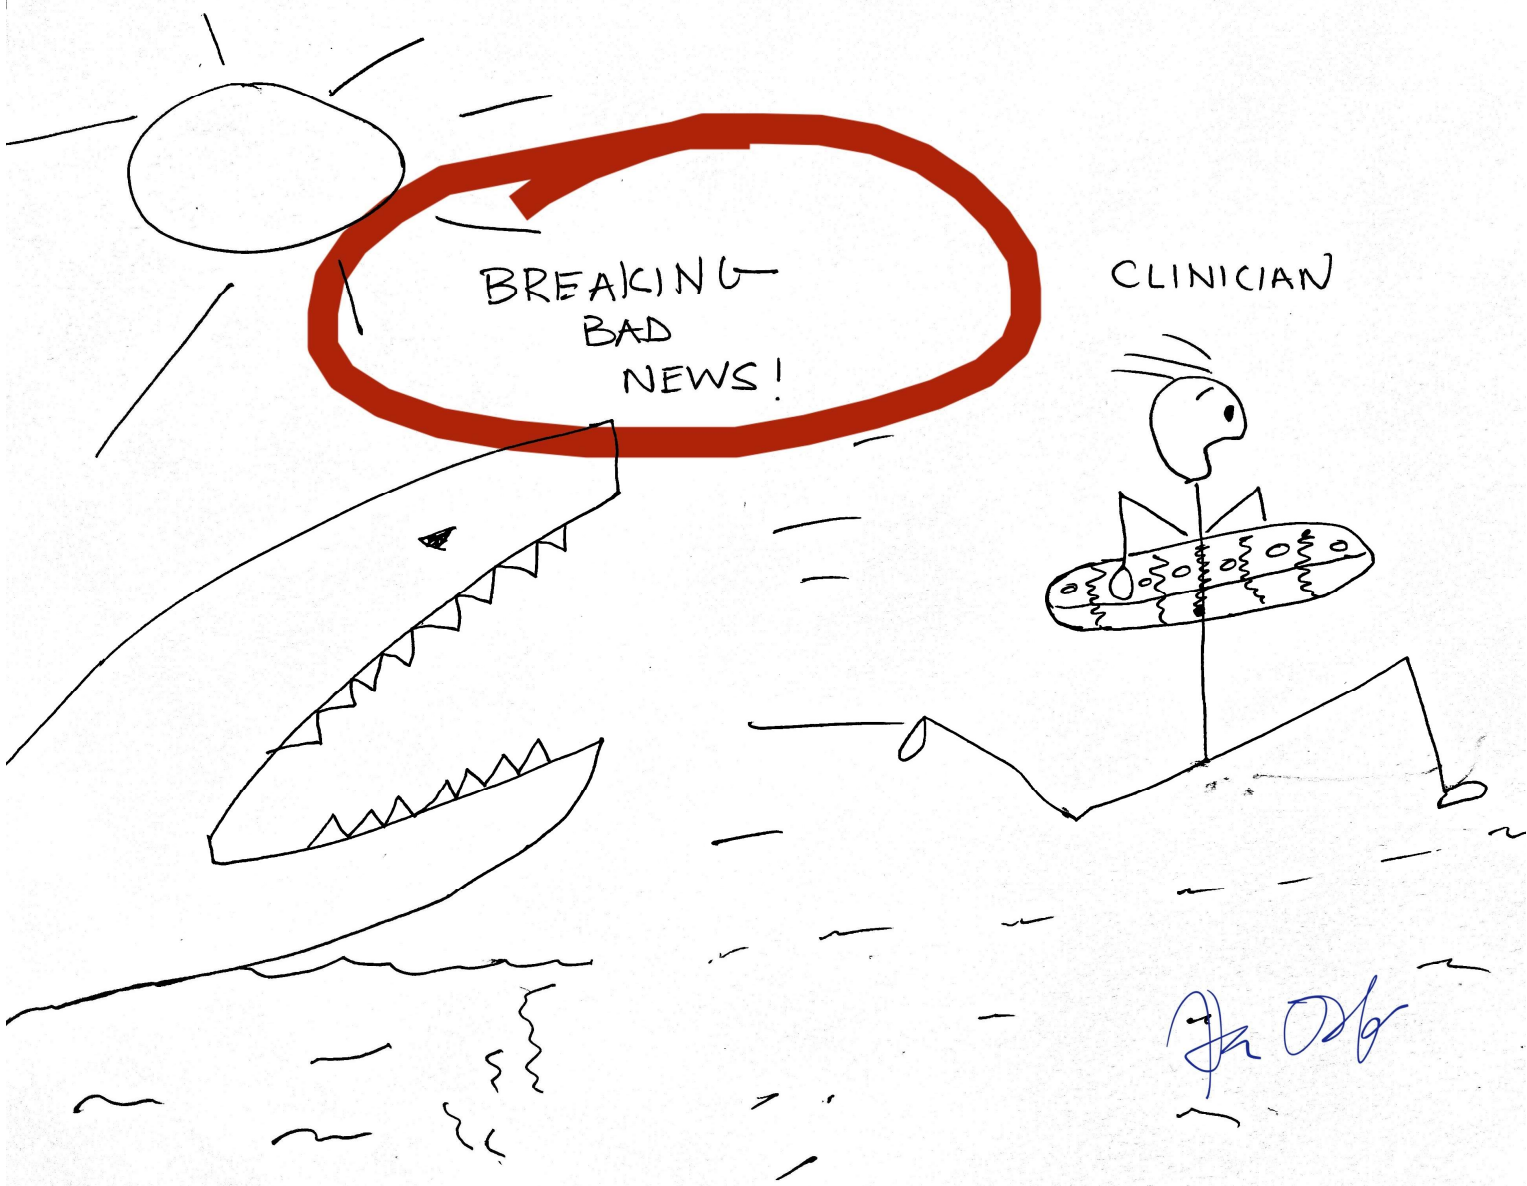 BREAKING
BAD
NEWS!
CLINICIAN